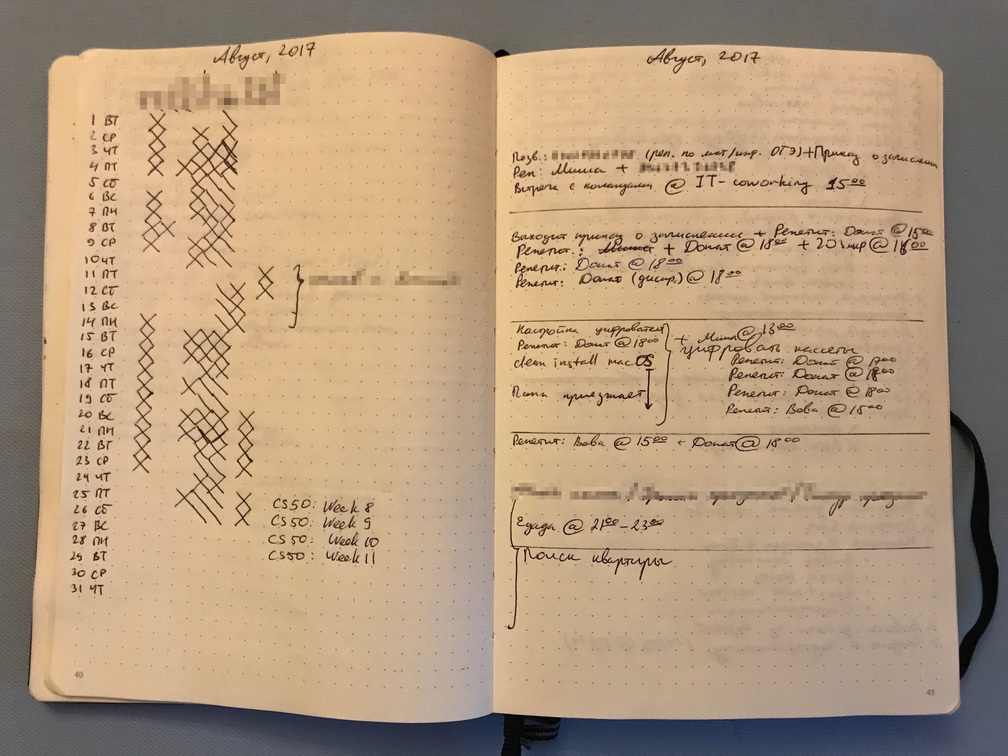 Август, 2017
1 ВТ
2 СР
3 ЧТ
4 ПТ
5 СБ
6 ВС
7 ПН
8 ВТ
9 СР
10 ЧТ
11 ПТ
12 СБ
13 ВС
14 ПН
15 ВТ
16 СР
17 ЧТ
18 ПТ
19 СБ
20 ВС
21 ПН
22 ВТ
23 СР
24 ЧТ
25 ПТ
26 СБ
27 ВС
28 ПН
29 ВТ
30 СР
31 ЧТ
CS50: Week 8
CS50: Week 9
CS50: Week 10
CS50: Week 11
40
Август, 2017
Позв.: (реп. по мат/инф. ОГЭ) + Приказ о зачислении
Реп: Миша +
Встреча с командами @ IT-coworking 15⁰⁰
Выходит приказ о зачислении + Репетит: Донат @ 15⁰⁰
Репетит.: Миша + Донат @ 18⁰⁰ + @ 18⁰⁰
Репетит: Донат @ 18⁰⁰
Репетит: Донат @ 18⁰⁰
Настройка
Репетит: Донат @ 18⁰⁰
clean install macOS
Папа приезжает
+ Миша @ 13⁰⁰
цифровать кассеты
Репетит: Донат @ 17⁰⁰
Репетит: Донат @ 18⁰⁰
Репетит: Донат @ 18⁰⁰
Репетит: Вова @ 15⁰⁰
Репетит: Вова @ 15⁰⁰ + Донат @ 18⁰⁰
Едада @ 21⁰⁰-23⁰⁰
Поиск квартиры
41